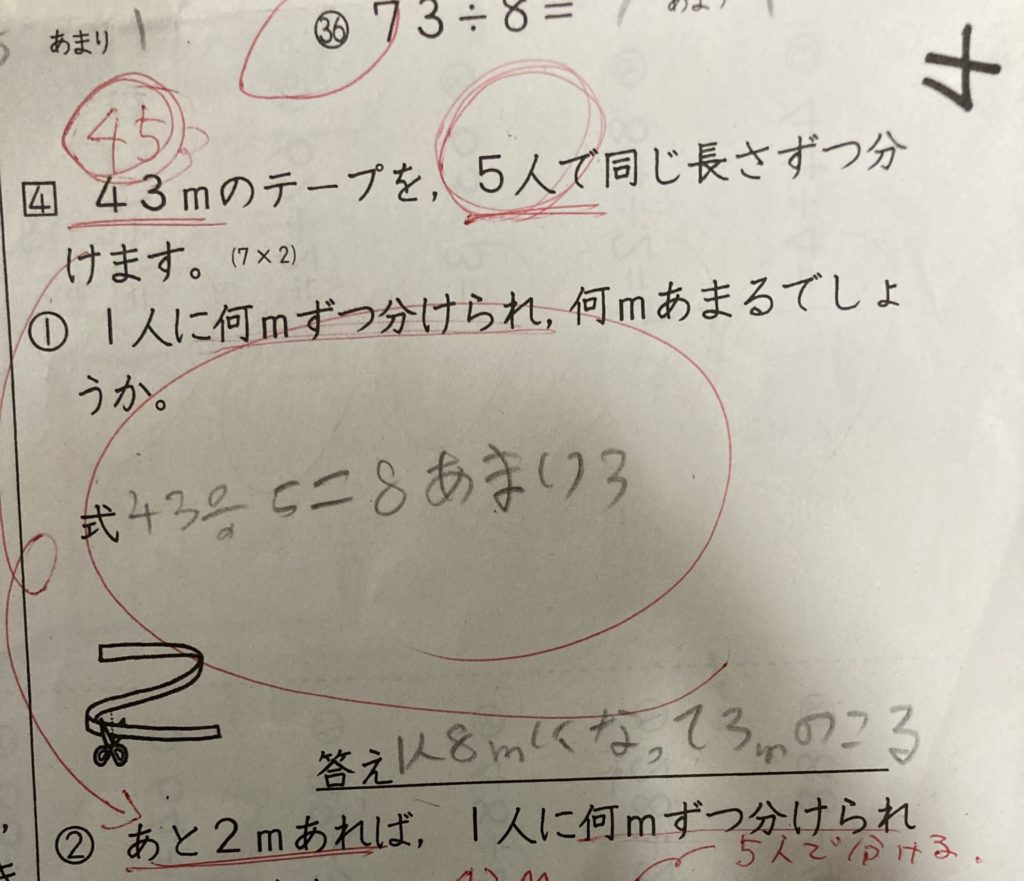 あまり 1
㊱ 73÷8=
4
45
4 43mのテープを,5人で同じ長さずつ分
けます。(7×2)
① 1人に何mずつ分けられ,何mあまるでしょ
うか。
式 43÷5=8あまり3
答え 1人8mになって3mのこる
② あと2mあれば,1人に何mずつ分けられ
5人で分ける.